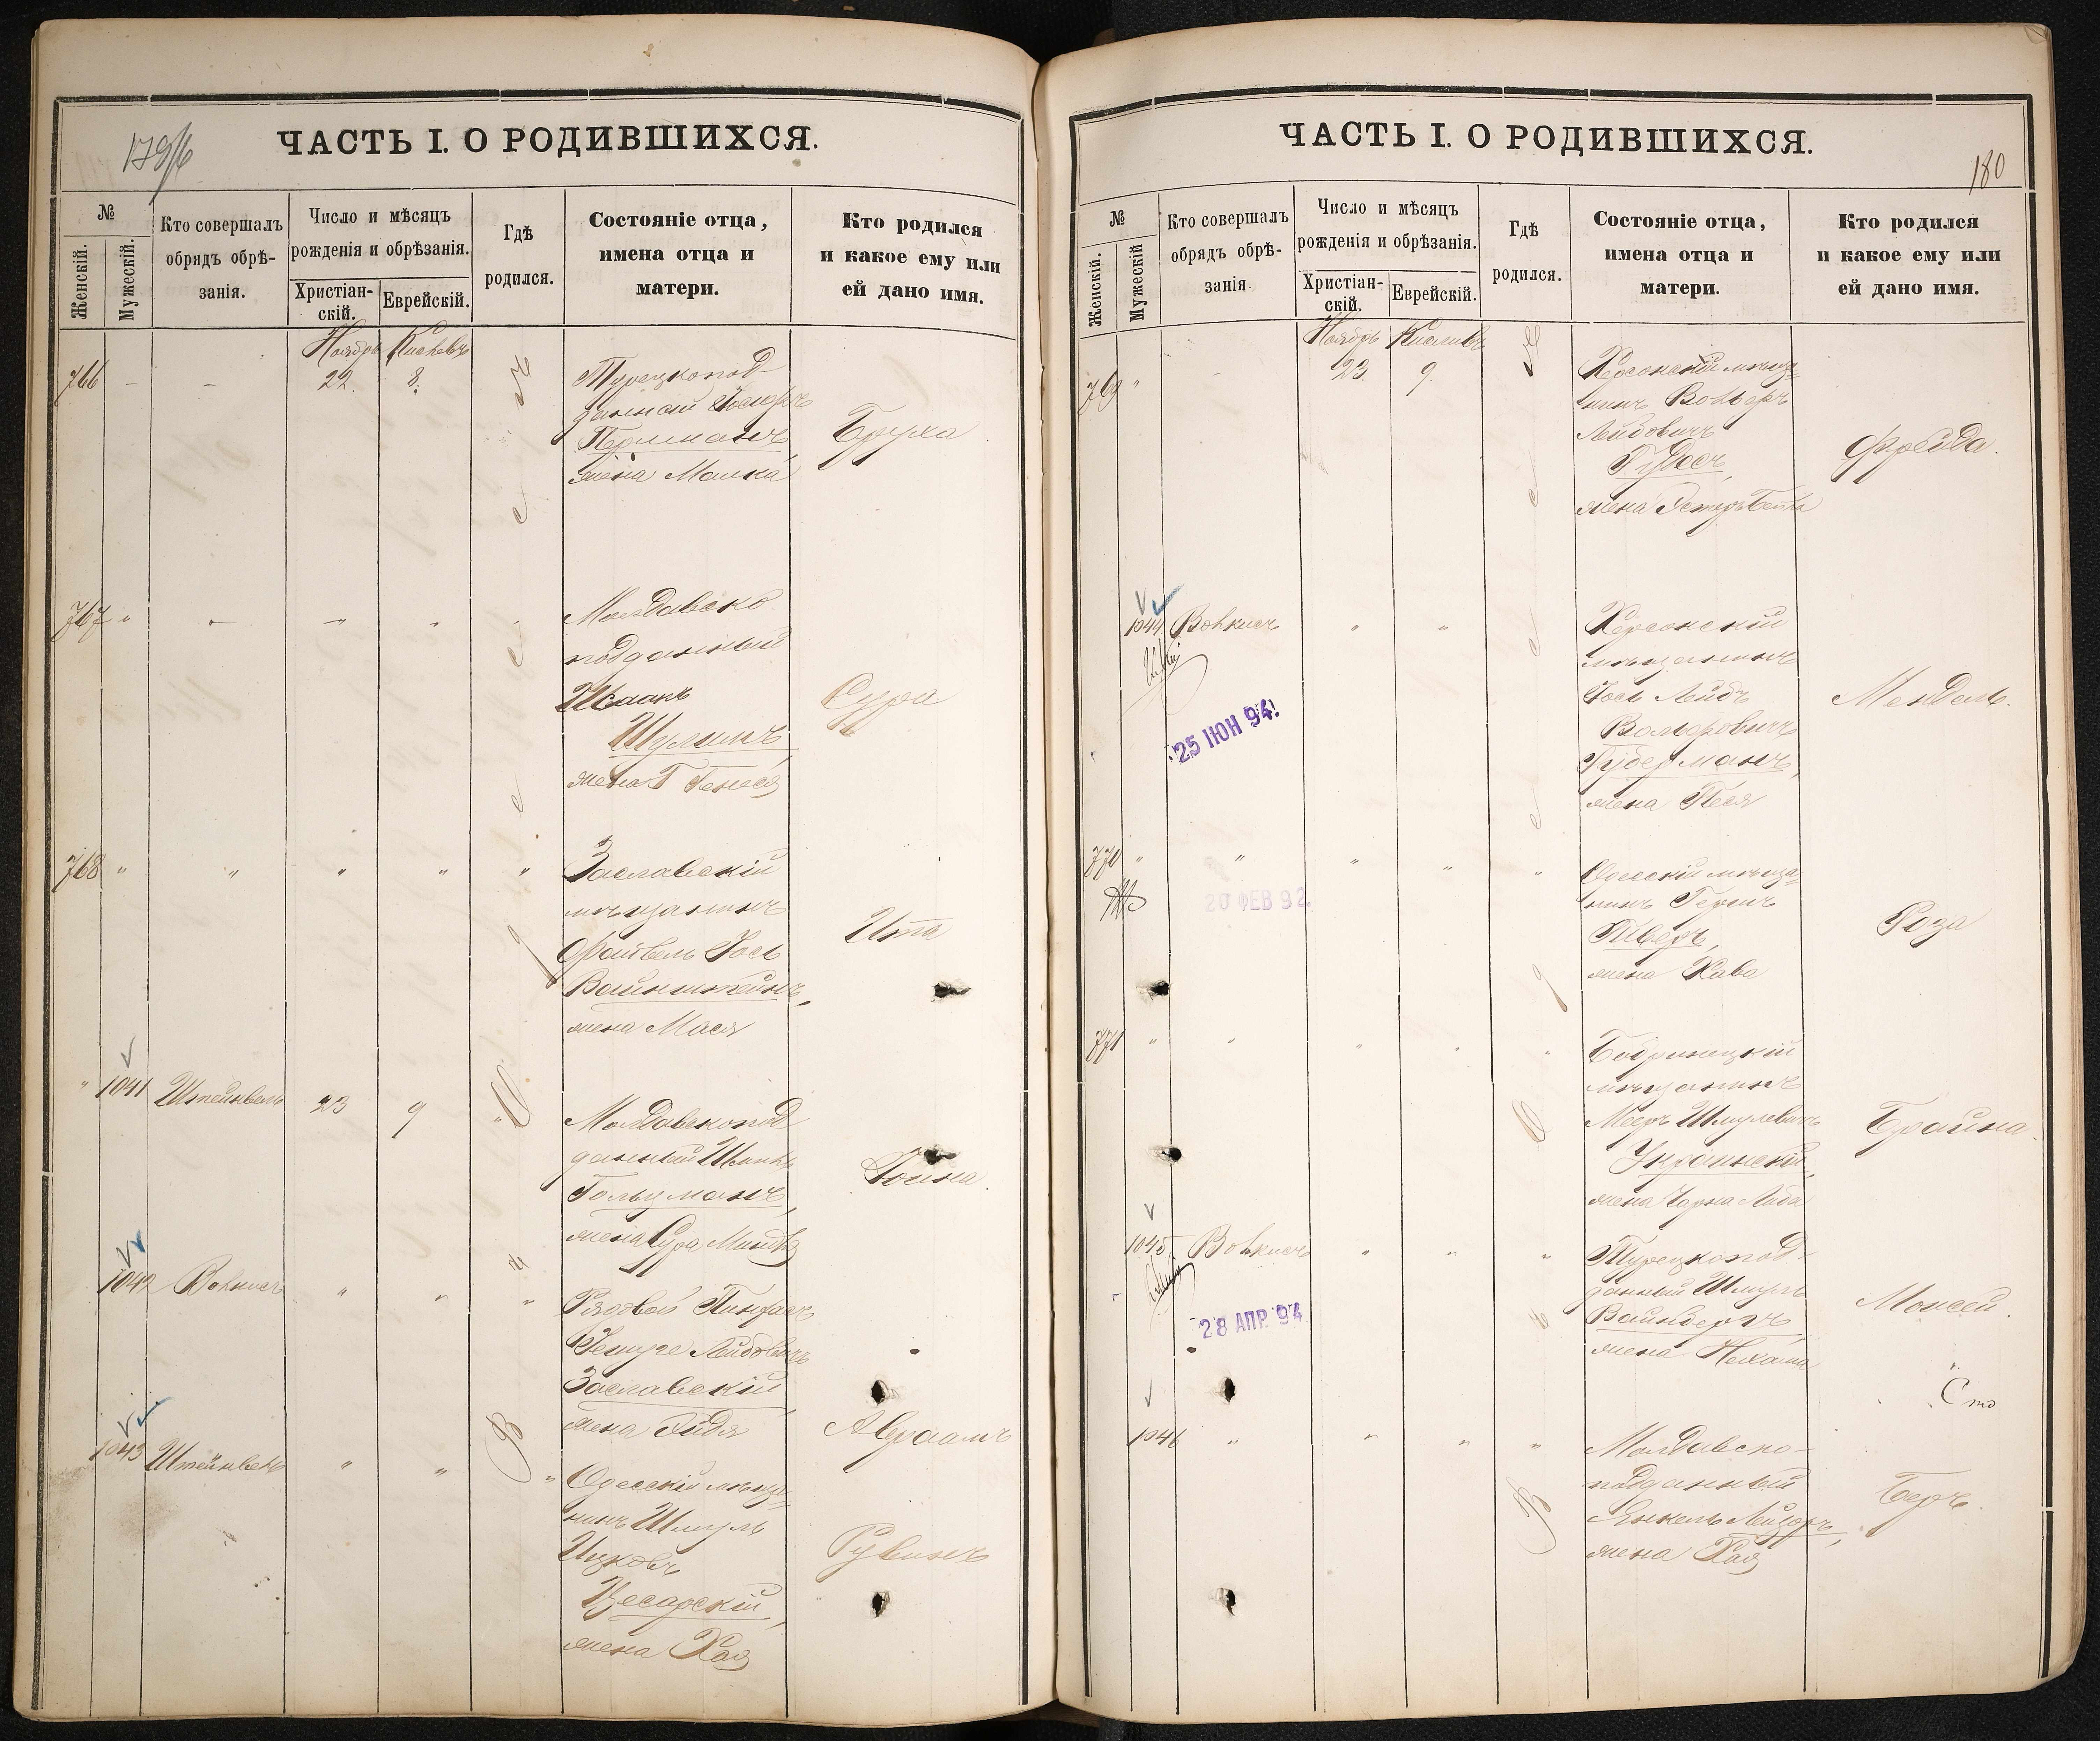 179/6
ЧАСТЬ I. О РОДИВШИХСЯ.
№
Женскій.
Мужескій.
Кто совершалъ
обрядъ обрѣ-
занія.
Число и мѣсяцъ
рожденія и обрѣзанія.
Христіан-
скій.
Еврейскій.
Гдѣ
родился.
Состояніе отца,
имена отца и
матери.
Кто родился
и какое ему или
ей дано имя.
Ноябрь Кислевъ
766 22. 8.
Турецкопод-
данный Іосифъ
Перлманъ
жена Малка
Бруха
767
Молдавско
подданный
Исаакъ
Шулимъ,
жена Генеся
Сура
768
Заславскій
мѣщанинъ
Файвель Іось
Вайнштейнъ,
жена Мася
Ита
1041 Штейнвель 23 9
Молдавскопод
данный
Гольцманъ,
жена Сура
1042 Вовкисъ
Рядовой Пинхасъ
Лейбовичъ
Заславскій,
жена
Авраамъ
1043 Штейнвель
Одесскій мѣща-
нинъ Шмуль
Ицковъ
Цесарскій,
жена Хая
Рувинъ
180
ЧАСТЬ I. О РОДИВШИХСЯ.
№
Женскій.
Мужескій
Кто совершалъ
обрядъ обрѣ-
занія
Число и мѣсяцъ
рожденія и обрѣзанія.
Христіан-
скій.
Еврейскій.
Гдѣ
родился.
Состояніе отца,
имена отца и
матери.
Кто родился
и какое ему или
ей дано имя.
Ноябрь Кислевъ
769 23. 9.
Херсонскій мѣща-
нинъ Вольфъ
Лейбовичъ
жена Эстеръ Бейла
Фрейда.
1044 Вовкисъ
25 ІЮН 94.
Херсонскій
мѣщанинъ
Іось Лейбъ
Вольфовичъ
Губерманъ,
жена Песя
Мендель.
770
20 ФЕВ 92
Одесскій мѣща-
нинъ Гершъ
жена Хава
Роза
771
Бобринецкій
мѣщанинъ
Мееръ Шмулевичъ
Украинскій,
жена Чарна Либа
Брайна.
1045 Вовкисъ
28 АПР. 94
Турецкопод-
данный Шмуль
Вайнбергъ,
жена Нехама
Моисей.
Сто
1046
Молдавско-
подданный
Янкель Лейзоръ,
жена Хая
Беръ.